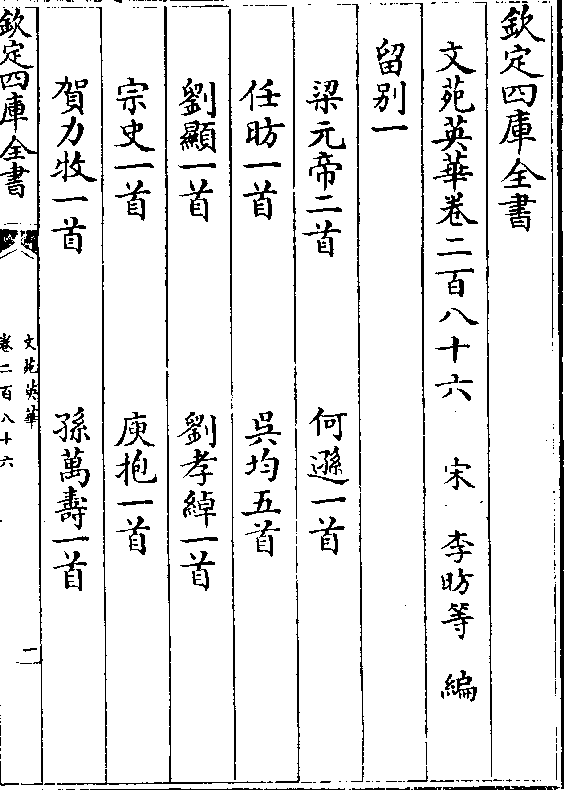 欽定四庫全書
文苑英華卷二百八十六 宋 李昉等 編
留别一
梁元帝二首 何遜一首
任昉一首 吳均五首
劉顯一首 劉孝綽一首
宗史一首 庾抱一首
賀力牧一首 孫萬壽一首
欽定四庫全書
文苑英華
卷二百八十六